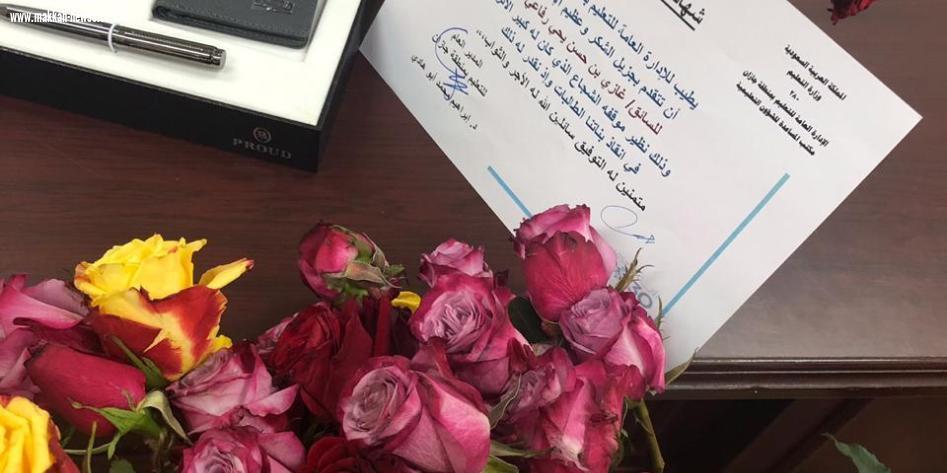 www.makkah-newse
PROUD
المملكة العربية السعودية
وزارة التعليم
٢٨٠
الإدارة العامة للتعليم بمنطقة جازان
مكتب المساعدة للشؤون التعليمية
يطيب للإدارة العامة للتعليم
أن تتقدم بجزيل الشكر و عظيم
للسائق/ غازي بن حسن يحي رفاعي
وذلك نظير موقفه الشجاع الذي كان له كبير الأثر
في انقاذ بناتنا الطالبات وإذ نقدر له ذلك
متمنين له التوفيق سائلين الله له الأجر والثواب
المدير العام
للتعليم بمنطقة جازان